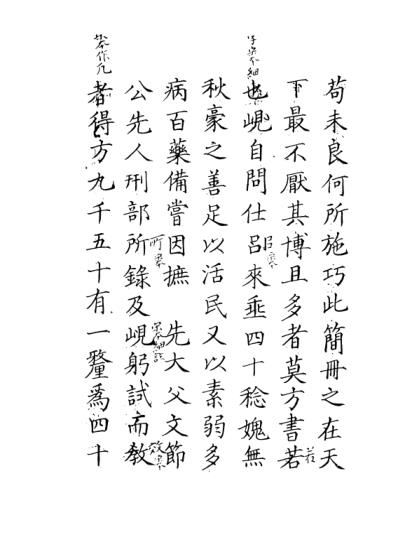 苟未良何所施巧此簡冊之在天
下最不厭其博且多者莫方書若
也峴自問仕以來垂四十稔媿無
秋豪之善足以活民又以素弱多
病百藥備嘗因摭 先大父文節
公先人刑部所錄及峴躬試而敎
者得方九千五十有一釐爲四十